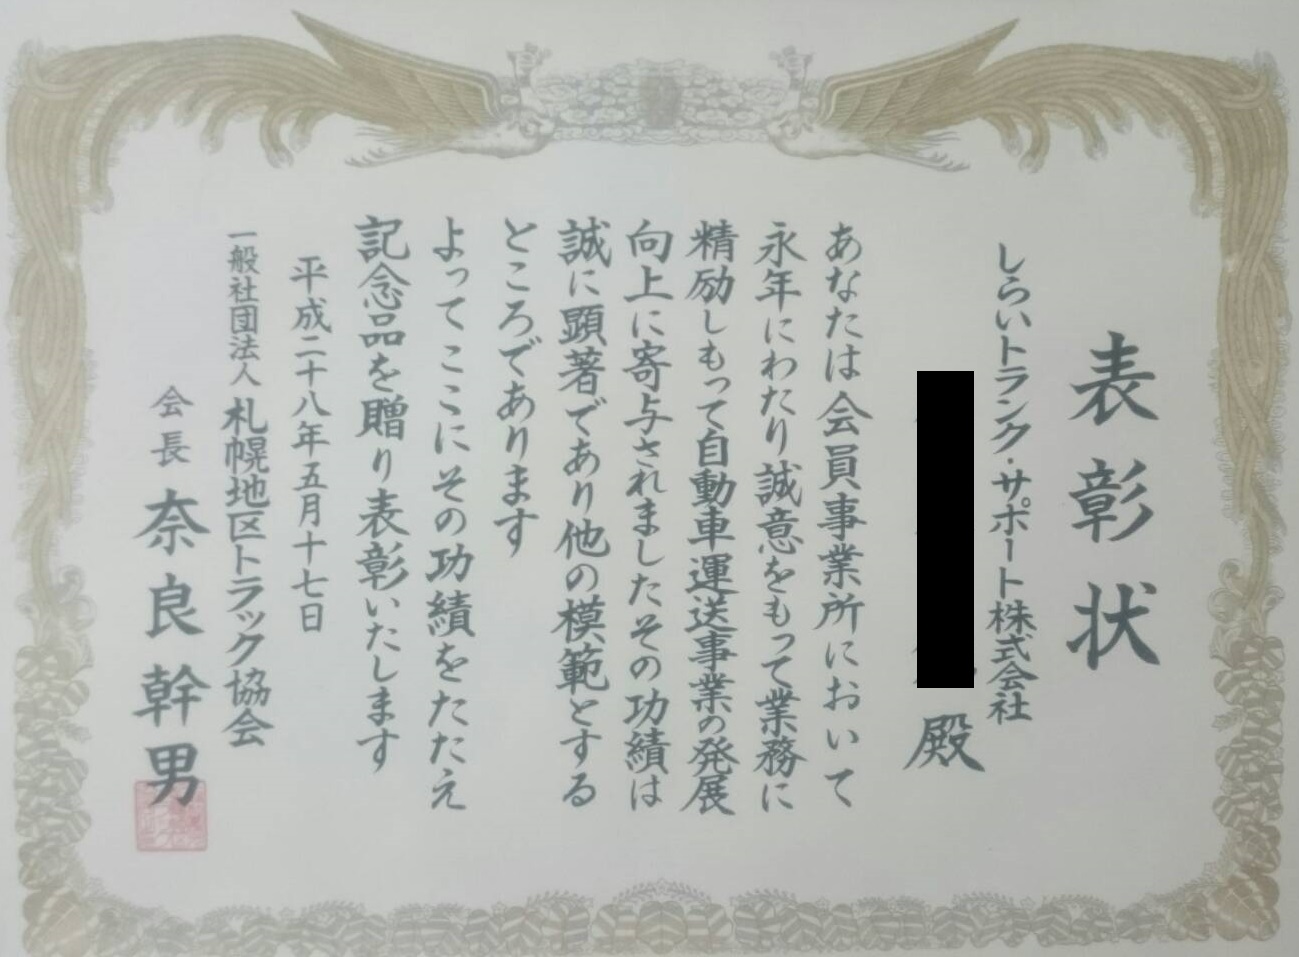 表彰状
しらいトランク・サポート株式会社
殿
あなたは会員事業所において
永年にわたり誠意をもって業務に
精励しもって自動車運送事業の発展
向上に寄与されましたその功績は
誠に顕著であり他の模範とする
ところであります
よってここにその功績をたたえ
記念品を贈り表彰いたします
平成二十八年五月十七日
一般社団法人札幌地区トラック協会
会長 奈良幹男